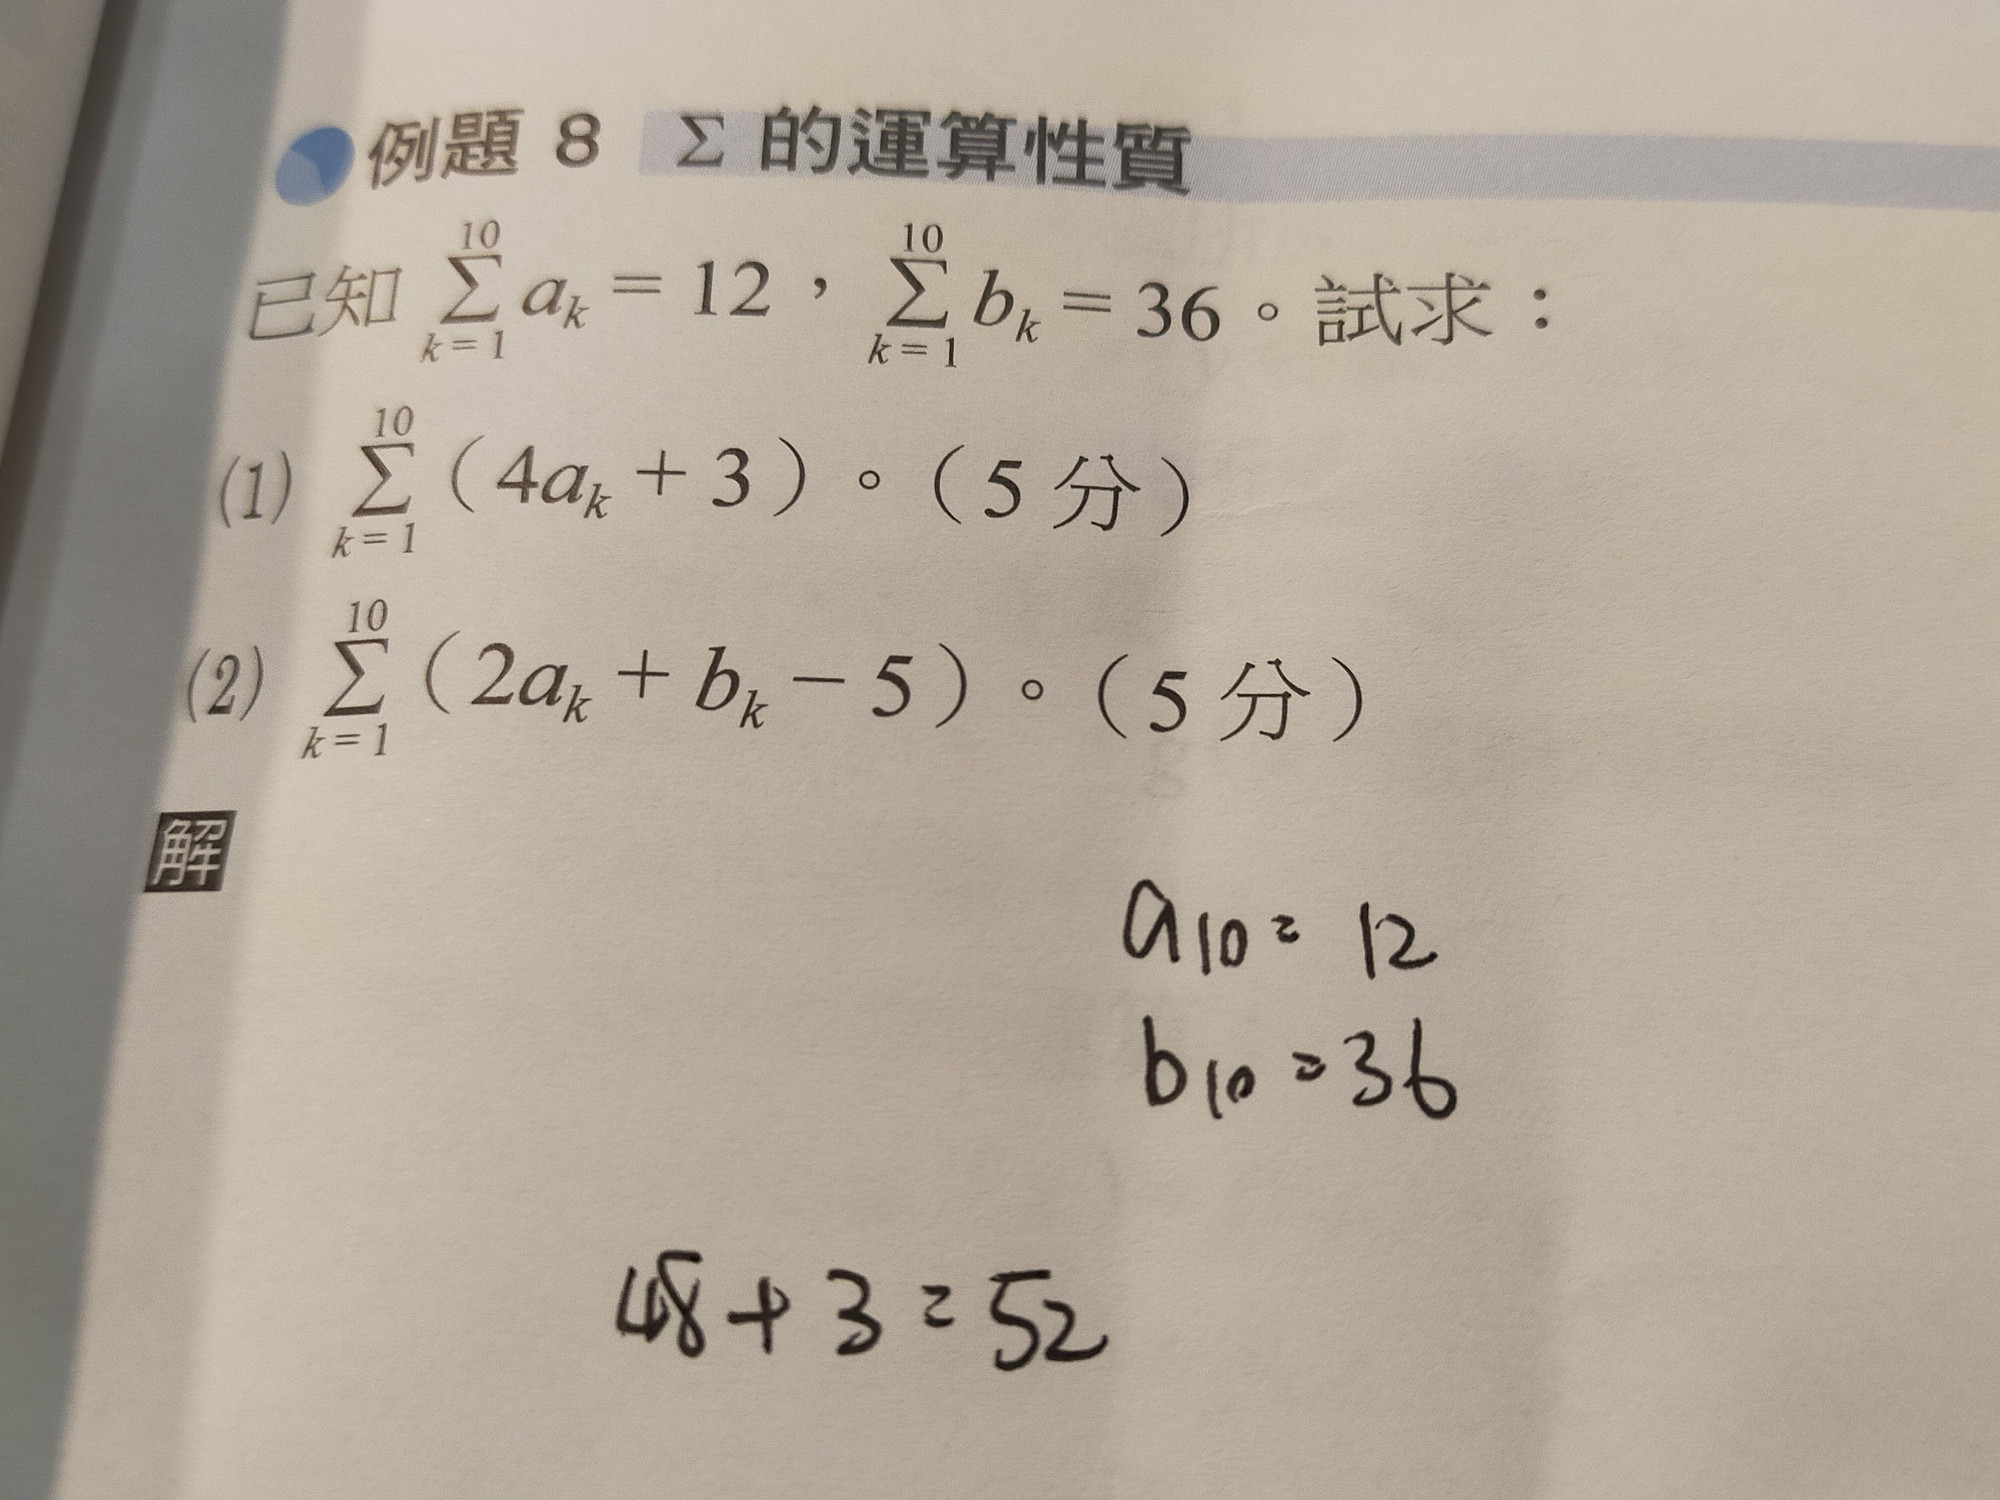 例題 8 Σ 的運算性質
已知 $\sum_{k=1}^{10} a_k = 12$，$\sum_{k=1}^{10} b_k = 36$。試求：
(1) $\sum_{k=1}^{10} (4a_k + 3)$。(5 分)
(2) $\sum_{k=1}^{10} (2a_k + b_k - 5)$。(5 分)
解
$a_{10} = 12$
$b_{10} = 36$
48 + 3 = 52